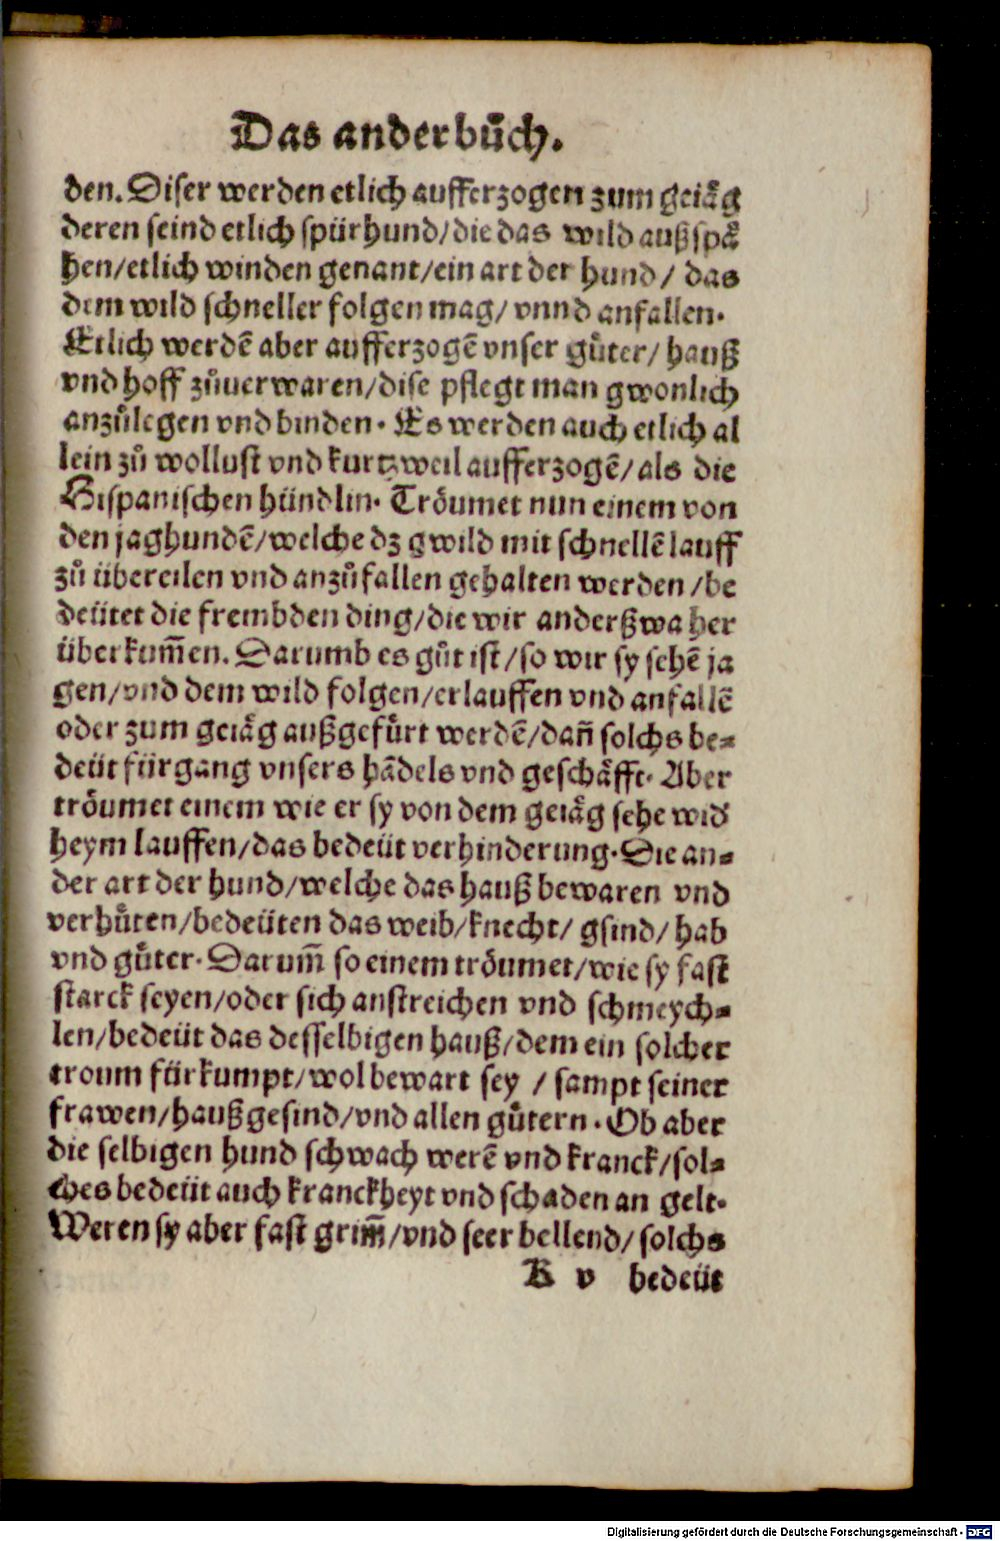 Das ander bůch.
den. Diser werden etlich aufferzogen zum geiäg
deren seind etlich spürhund/die das wild außspä
hen/etlich winden genant/ein art der hund/ das
dem wild schneller folgen mag/ vnnd anfallen.
Etlich werdē aber aufferzogē vnser gůter/ hauß
vnd hoff zůuerwaren/dise pflegt man gwonlich
anzůlegen vnd binden. Es werden auch etlich al
lein zů wollust vnd kurtzweil aufferzogē/als die
Hispanischen hündlin. Tröumet nun einem von
den jaghundē/welche dz gwild mit schnellē lauff
zů übereilen vnd anzůfallen gehalten werden/be
deütet die frembden ding/die wir anderßwa her
überkum̄en. Darumb es gůt ist/so wir sy sehē ja
gen/vnd dem wild folgen/erlauffen vnd anfallē
oder zum geiäg außgefürt werdē/dañ solchs be⸗
deüt fürgang vnsers hādels vnd geschäfft. Aber
tröumet einem wie er sy von dem geiäg sehe wid̛
heym lauffen/das bedeüt verhinderung. Die an⸗
der art der hund/welche das hauß bewaren vnd
verhůten/bedeüten das weib/knecht/ gsind/ hab
vnd gůter. Darum̄ so einem tröumet/wie sy fast
starck seyen/oder sich anstreichen vnd schmeych⸗
len/bedeüt das desselbigen hauß/dem ein solcher
troum fürkumpt/wol bewart sey / sampt seiner
frawen/haußgesind/vnd allen gůtern. Ob aber
die selbigen hund schwach werē vnd kranck/sol⸗
ches bedeüt auch kranckheyt vnd schaden an gelt.
Weren sy aber fast grim̄/vnd seer bellend/ solchs
K v bedeüt
Digitalisierung gefördert durch die Deutsche Forschungsgemeinschaft - DFG